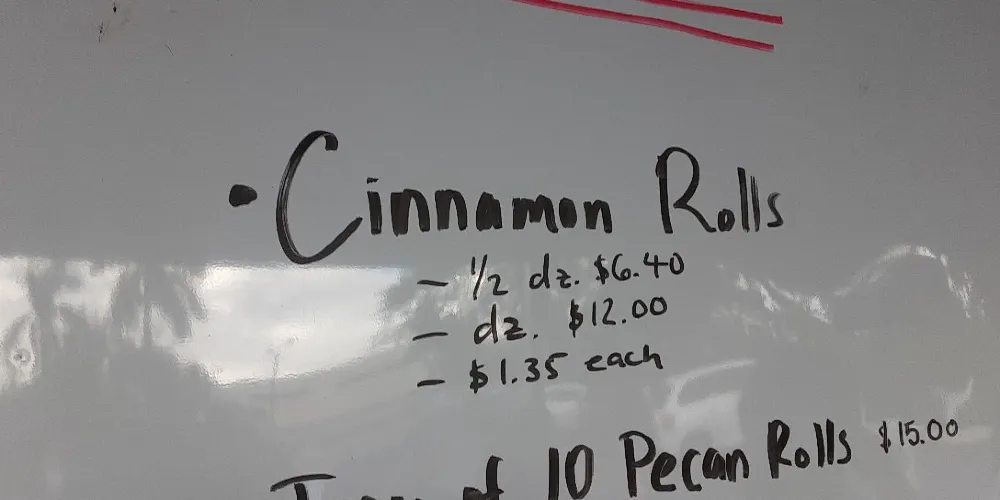 • Cinnamon Rolls
– 1/2 dz. $6.40
– dz. $12.00
– $1.35 each
of 10 Pecan Rolls $15.00